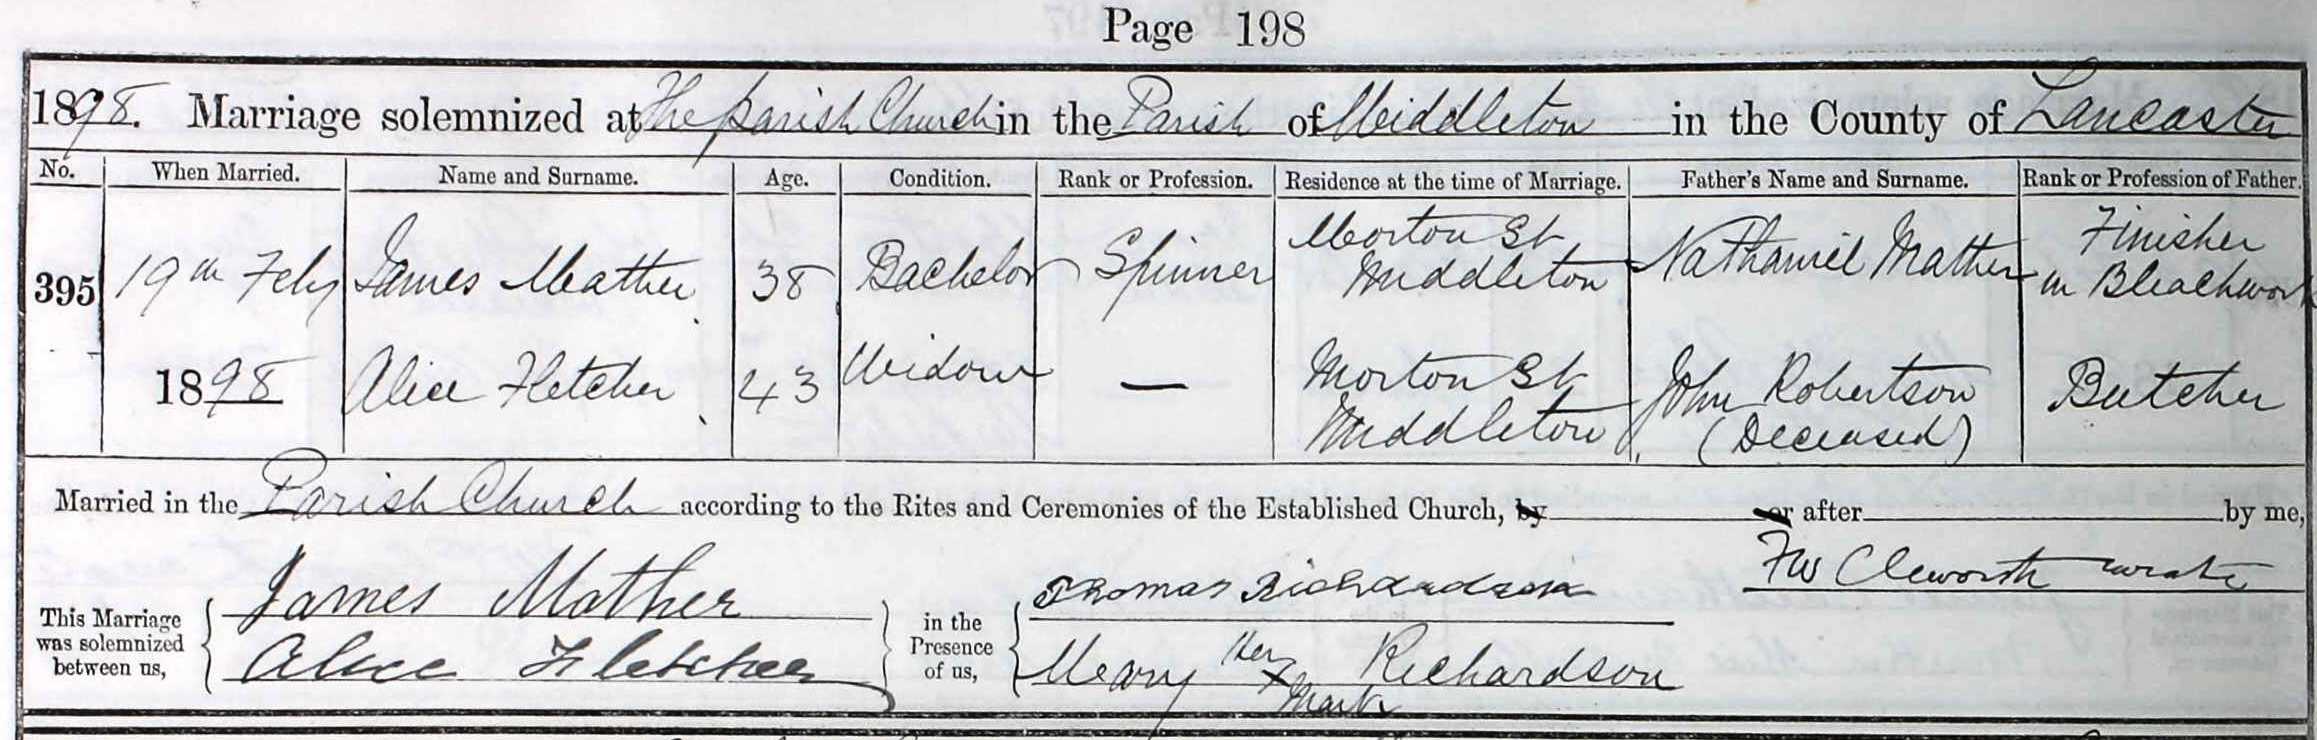 Page 198
1898. Marriage solemnized at The parish Church in the Parish of Middleton in the County of Lancaster
No. When Married. Name and Surname. Age. Condition. Rank or Profession. Residence at the time of Marriage. Father's Name and Surname. Rank or Profession of Father.
395 19th Feby James Mather 38 Bachelor Spinner Morton St Middleton Nathaniel Mather Finisher in Bleachwork
1898 Alice Fletcher 43 Widow — Morton St Middleton John Robertson (Deceased) Butcher
Married in the Parish Church according to the Rites and Ceremonies of the Established Church, by or after by me,
James Mather Thomas Richardson FW Cleworth curate
This Marriage was solemnized between us, in the Presence of us,
Alice Fletcher Mary her x mark Richardson